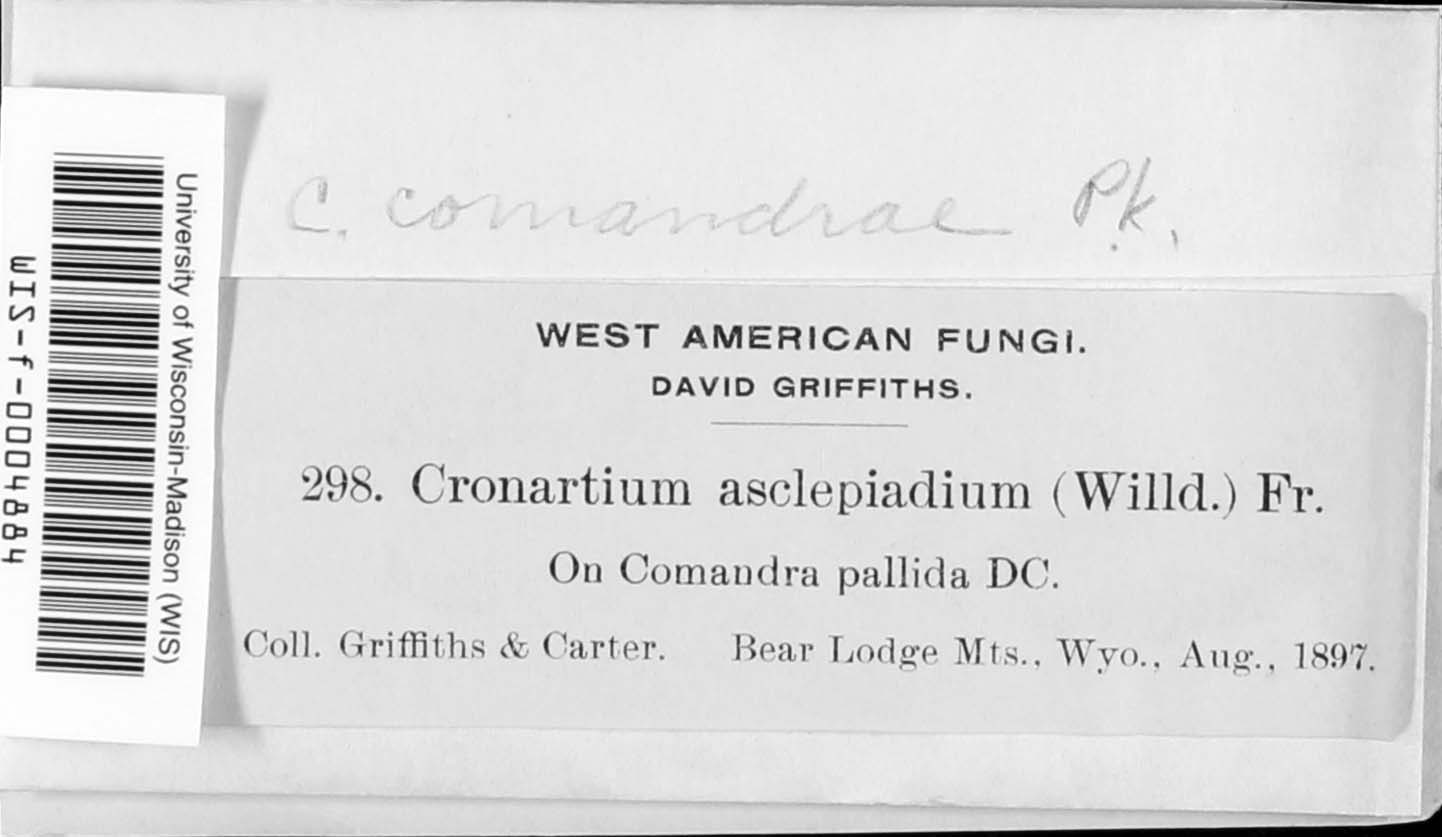 C. comandrae Pk.
WEST AMERICAN FUNGI.
DAVID GRIFFITHS.
298. Cronartium asclepiadium (Willd.) Fr.
On Comandra pallida DC.
Coll. Griffiths & Carter. Bear Lodge Mts., Wyo., Aug., 1897.
University of Wisconsin-Madison (WIS)
WIS-f-0004884